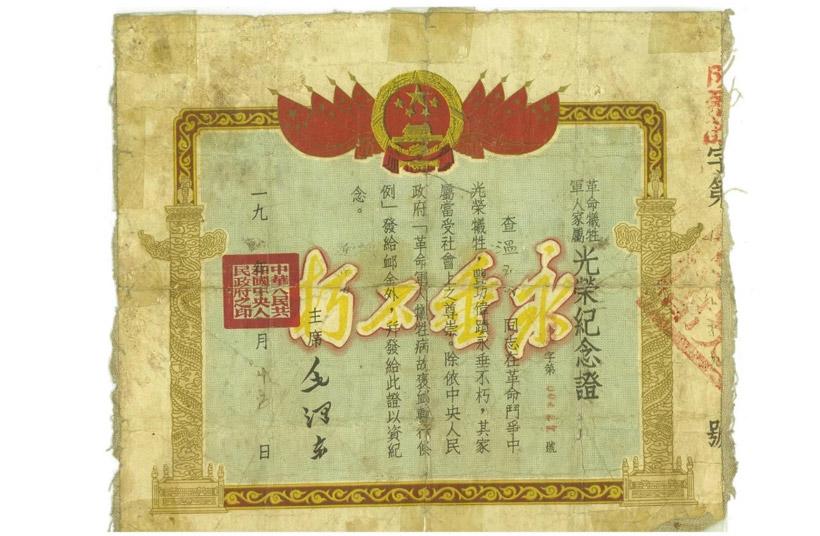 字第
號
革命犧牲
軍人家屬
光榮紀念證
字第 號
永垂不朽
查溫 同志在革命鬥爭中
光榮犧牲，豐功偉績永垂不朽，其家
屬當受社會上之尊崇。除依中央人民
政府「革命軍人犧牲病故褒卹暫行條
例」發給卹金外，并發給此證以資紀
念。
主席 毛澤東
一九 年 月 日
中華人民共
和國中央人
民政府之印